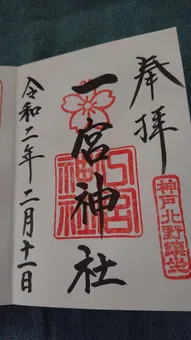 奉拝
神戸北野鎮坐
一宮神社
一宮神社
令和二年二月十一日